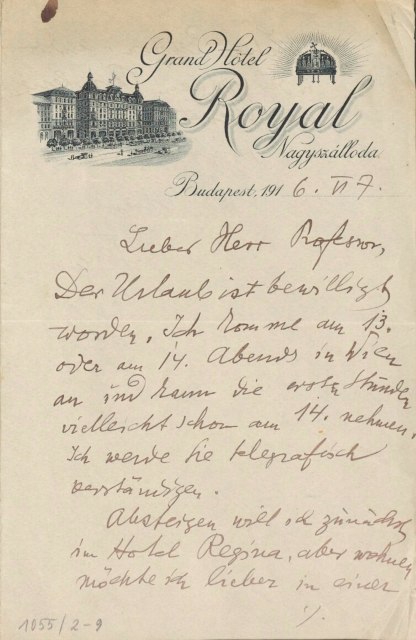 Grand Hôtel
Royal
Nagyszálloda
Budapest, 1916. VI 7.
Lieber Herr Professor,
Der Urlaub ist bewilligt
worden. Ich komme am 13.
oder am 14. Abends in Wien
an und kann die ersten Stunden
vielleicht schon am 14. nehmen.
Ich werde Sie telegrafisch
verständigen.
Absteigen will ich zunächst
im Hotel Regina, aber wohnen
möchte ich lieber in einer
./.
1055/2-9